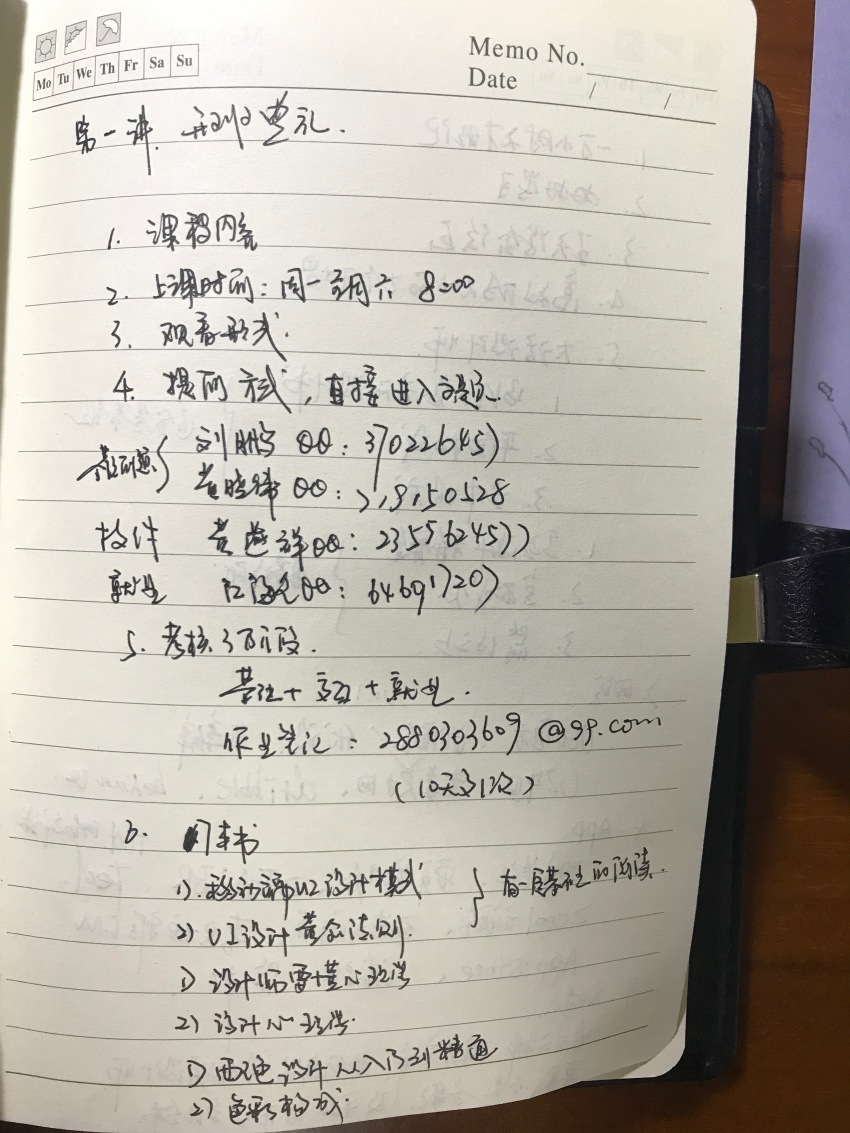 Mo Tu We Th Fr Sa Su
Memo No.
Date / /
第一讲. 开班典礼.
1. 课程内容
2. 上课时间: 周一至周六 8:00
3. 观看形式.
4. 提问方式, 直接进入主题.
刘鹏 QQ:
黄晓伟 QQ:
软件 QQ:
就业 QQ:
5. 考核3个阶段.
基社+交互+就业.
作业笔记: 2880303609@qq.com
(10天交1次)
6. 用书
1) 移动端UI设计模式
2) UI设计黄金法则.
有一定基础的阅读.
1) 设计师要懂心理学
2) 设计心理学.
1) 配色设计从入门到精通
2) 色彩构成.